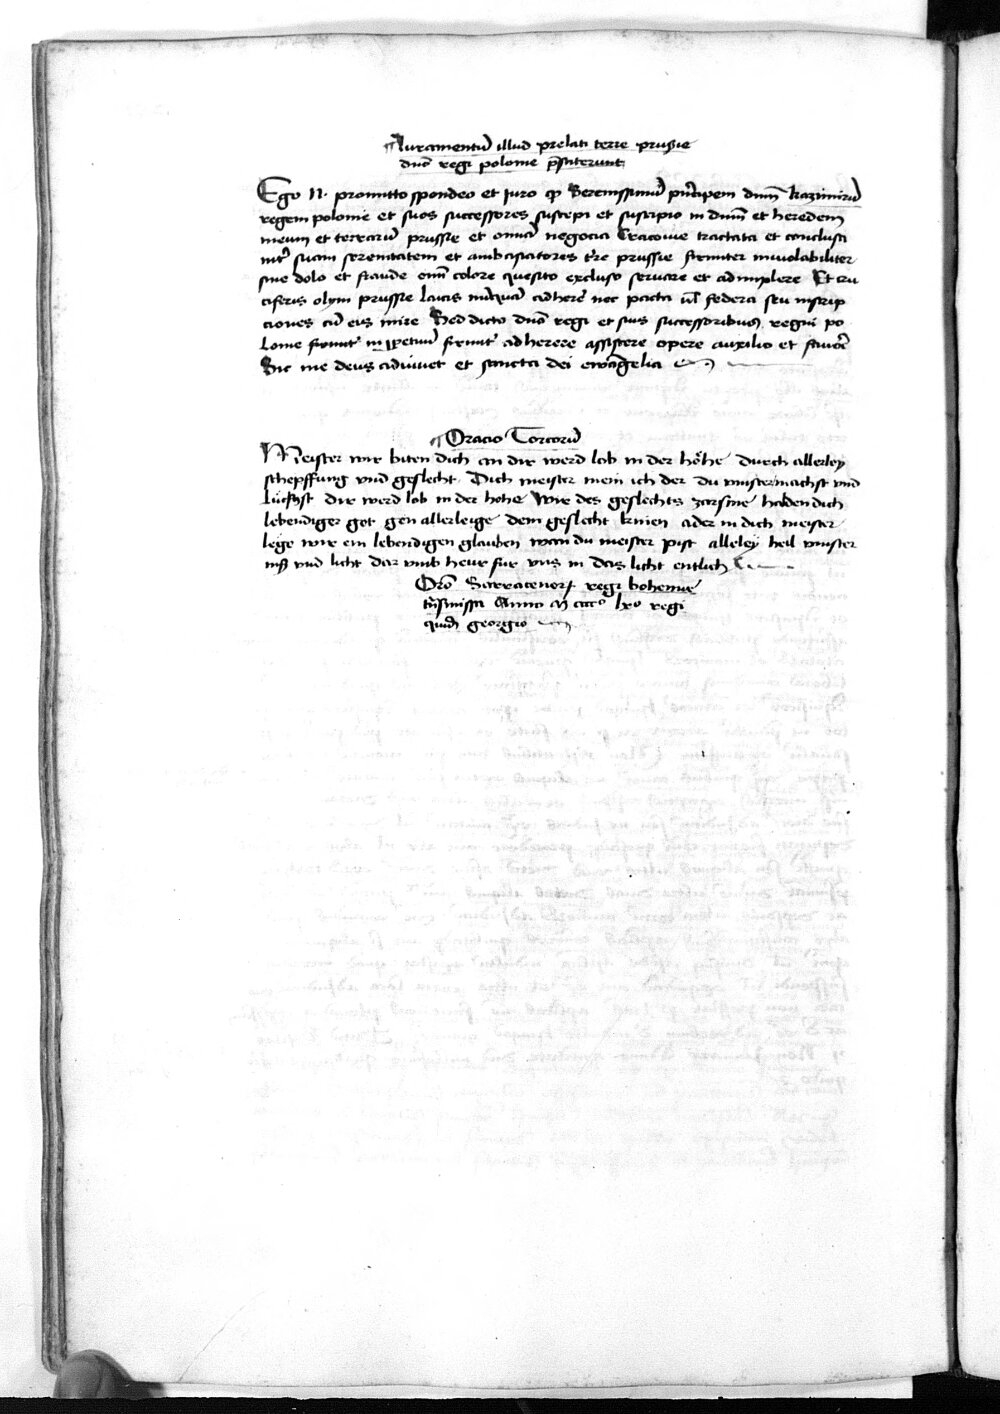 ¶ Iuramentū illud prelati terre prussie
dn̄o regi polonie p̄stiterunt
Ego N· promitto spondeo et Iuro ꝙ Serenissimū prīcipem dnm̄ kazimirū
regem polonie et suos successores suscepi et suscipio in dnm̄ et heredem
meum et terrarū prussie et omīa negocia Cracovie tractata et conclusa
int̄ suam serenitatem et ambasiatores tr̄e prussie firmiter inviolabiliter
sine dolo et fraude omī colore quesito excluso servare et adimplere Et cru
ciferis olym prussie laicis nūquā adherē nec pacta ul̄ federa seu inscrip
ciones cū eis inire Sed dicto dn̄o regi et suis successoribus regni po
lonie firmit̄ in ꝑpetuū firmit̄ adherere assistere opere auxilio et favorē
Sic me deus adiuvet et sancta dei ewāgelia
¶ Oracio Torcorū
Meister wir biten dich an dir werd lob in der höhe durch allerley
schepffung und geslecht Dich meister mein ich der du vinstermachst und
liichst dir werd lob in der hohe Wir des geslechts zarsine halden dich
lebendiger got gen allerleige dem geslecht knien ader in dich meister
lege wir ein lebendigen glauben wan du meister pist alleley heil vinster
niß und licht dar umb heur fur uns in das licht entlich
Orō Sarracenorꝝ regi bohemie
trāsmissa Anno M ccccᵒ lxᵒ regi
quidē georgio